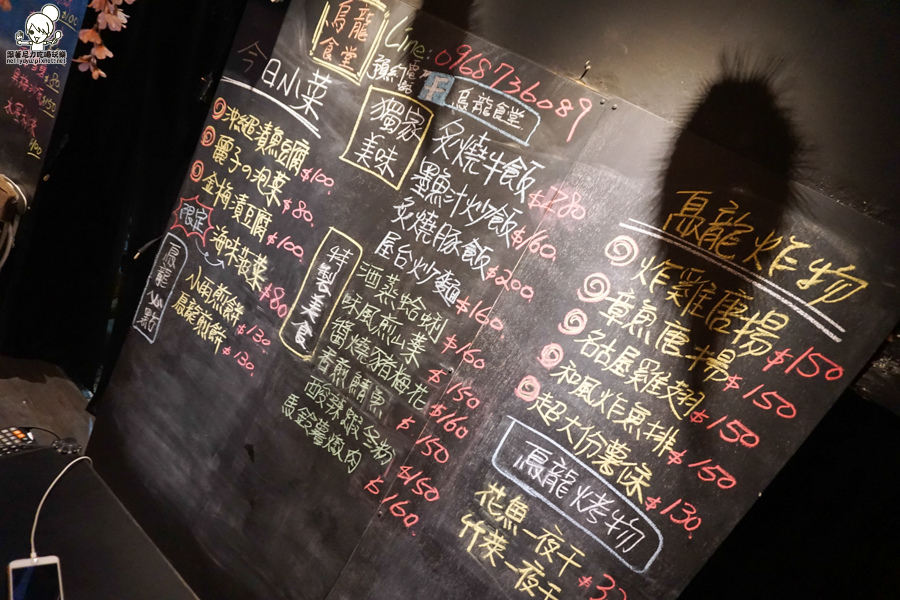 跟著尼力吃喝玩樂
烏龍
食堂
Line:
0968736089
預約電話
烏龍食堂
今日小菜
沖繩漬魚豆腐 $100.
麗子の泡菜 $80.
金梅漬豆腐 $100.
限定
海味裙菜 $80
烏龍小點
小卷煎餅 $130.
烏龍煎餅 $130.
獨家
美味
炙燒牛飯 $280
墨魚汁炒飯 $160.
炙燒豚飯 $200.
屋台炒麵 $160
特製美食
酒蒸蛤蜊 $160
和風煎山藥 $150
醬燒豬梅花 $160
香煎鯖魚 $150
酸辣蝦冬粉 $150
馬鈴薯燉肉 $160.
烏龍炸物
炸雞唐揚 $150
章魚唐揚 $150
名古屋雞翅 $150
和風炸魚排 $150
超大份薯條 $130.
烏龍烤物
花魚一夜干
竹筴一夜干